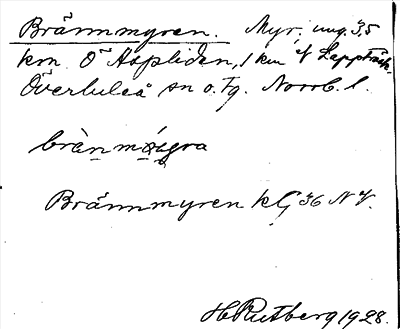 Brännmyren. Myr, ung. 3,5
km Ö Aspliden, 1 km V Lappträsk.
Överluleå sn o. tg. Norrb. l.
brànmýgra
Brännmyren kG 36 NV.
H Rutberg 1928.